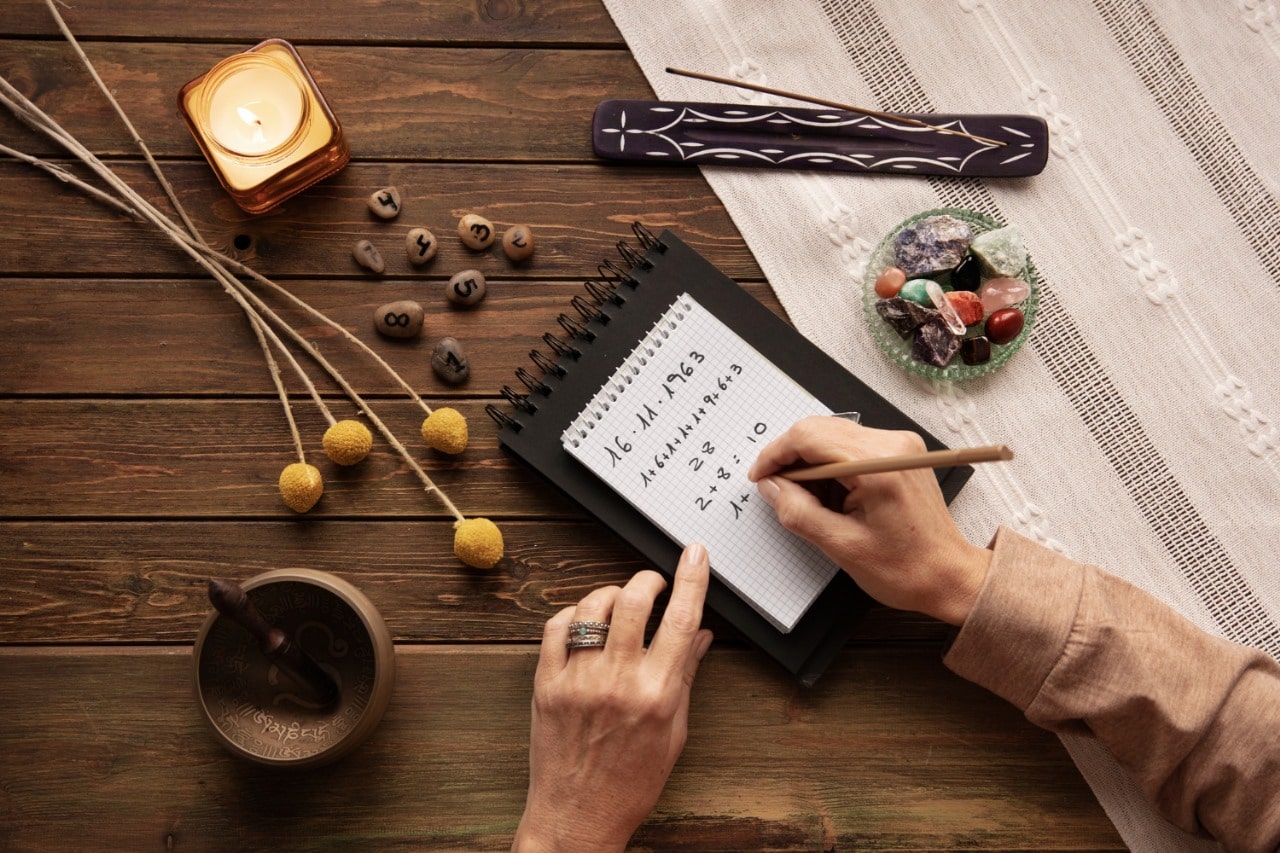 4
4
3
5
8
1
16.11.1963
1+6+1+1+1+9+6+3
28
2+8= 10
1+